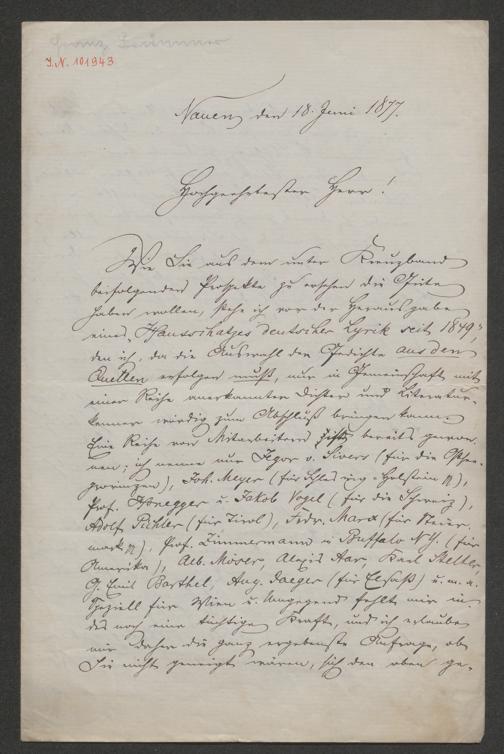 Franz Brümmer
I.N. 101943
Nauen, den 18. Juni 1877.
Hochgeehrtester Herr!
Wie Sie aus dem unter Kreuzband
beifolgenden Prospekte zu ersehen die Güte
haben wollen, stehe ich vor der Herausgabe
eines „Hausschatzes deutscher Lyrik seit 1849",
den ich, da die Auswahl der Gedichte aus den
Quellen erfolgen muß, nur in Gemeinschaft mit
einer Reihe anerkannter Dichter und Literatur-
kenner würdig zum Abschluß bringen kann.
Eine Reihe von Mitarbeitern bereits gewon-
nen; ich nenne nur Jegor v. Sivers (für die Ostsee-
provinzen), Joh. Meyer (für Schleswig-Holstein),
Prof. Honegger u. Jakob Vogel (für die Schweiz),
Adolf Pichler (für Tirol), Frdr. Marx (für Steier-
mark), Prof. Zimmermann in Buffalo N.Y. (für
Amerika), Alb. Moser, Alexis Aar, Karl Stelter,
G. Emil Barthel, Aug. Jaeger (für Elsaß) u. m. a.
Speziell für Wien u. Umgegend fehlt mir in-
des noch eine tüchtige Kraft, und ich erlaube
mir daher die ganz ergebenste Anfrage, ob
Sie nicht geneigt wären, sich den oben ge-